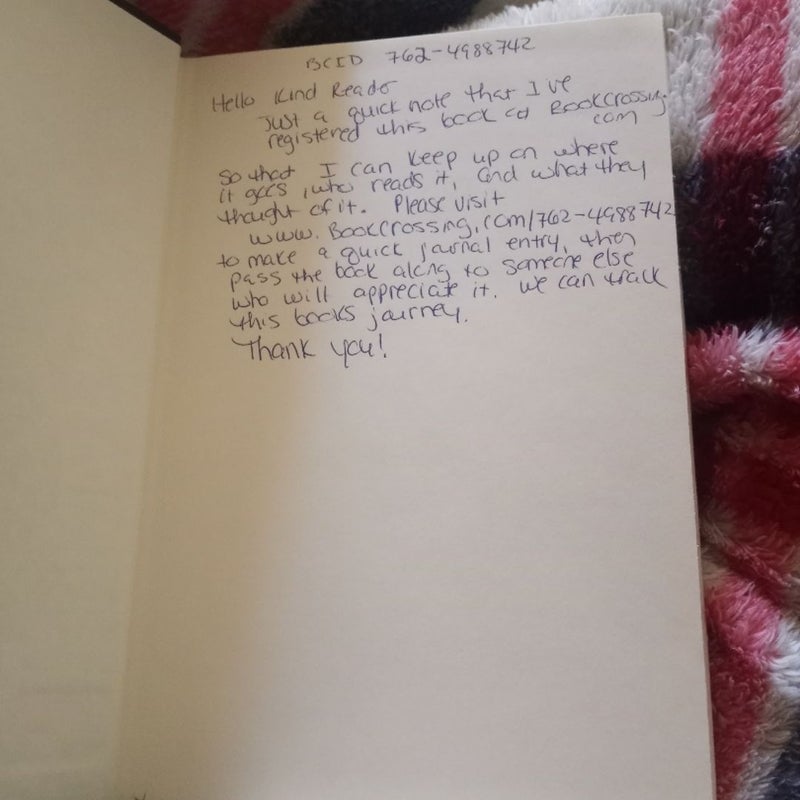 BCID 762-4988742
Hello Kind Reader
Just a quick note that I've
registered this book at Bookcrossing.
com
so that I can keep up on where
it goes, who reads it, and what they
thought of it. Please visit
www.Bookcrossing.com/762-4988742
to make a quick journal entry, then
pass the book along to someone else
who will appreciate it. We can track
this books journey.
Thank you!